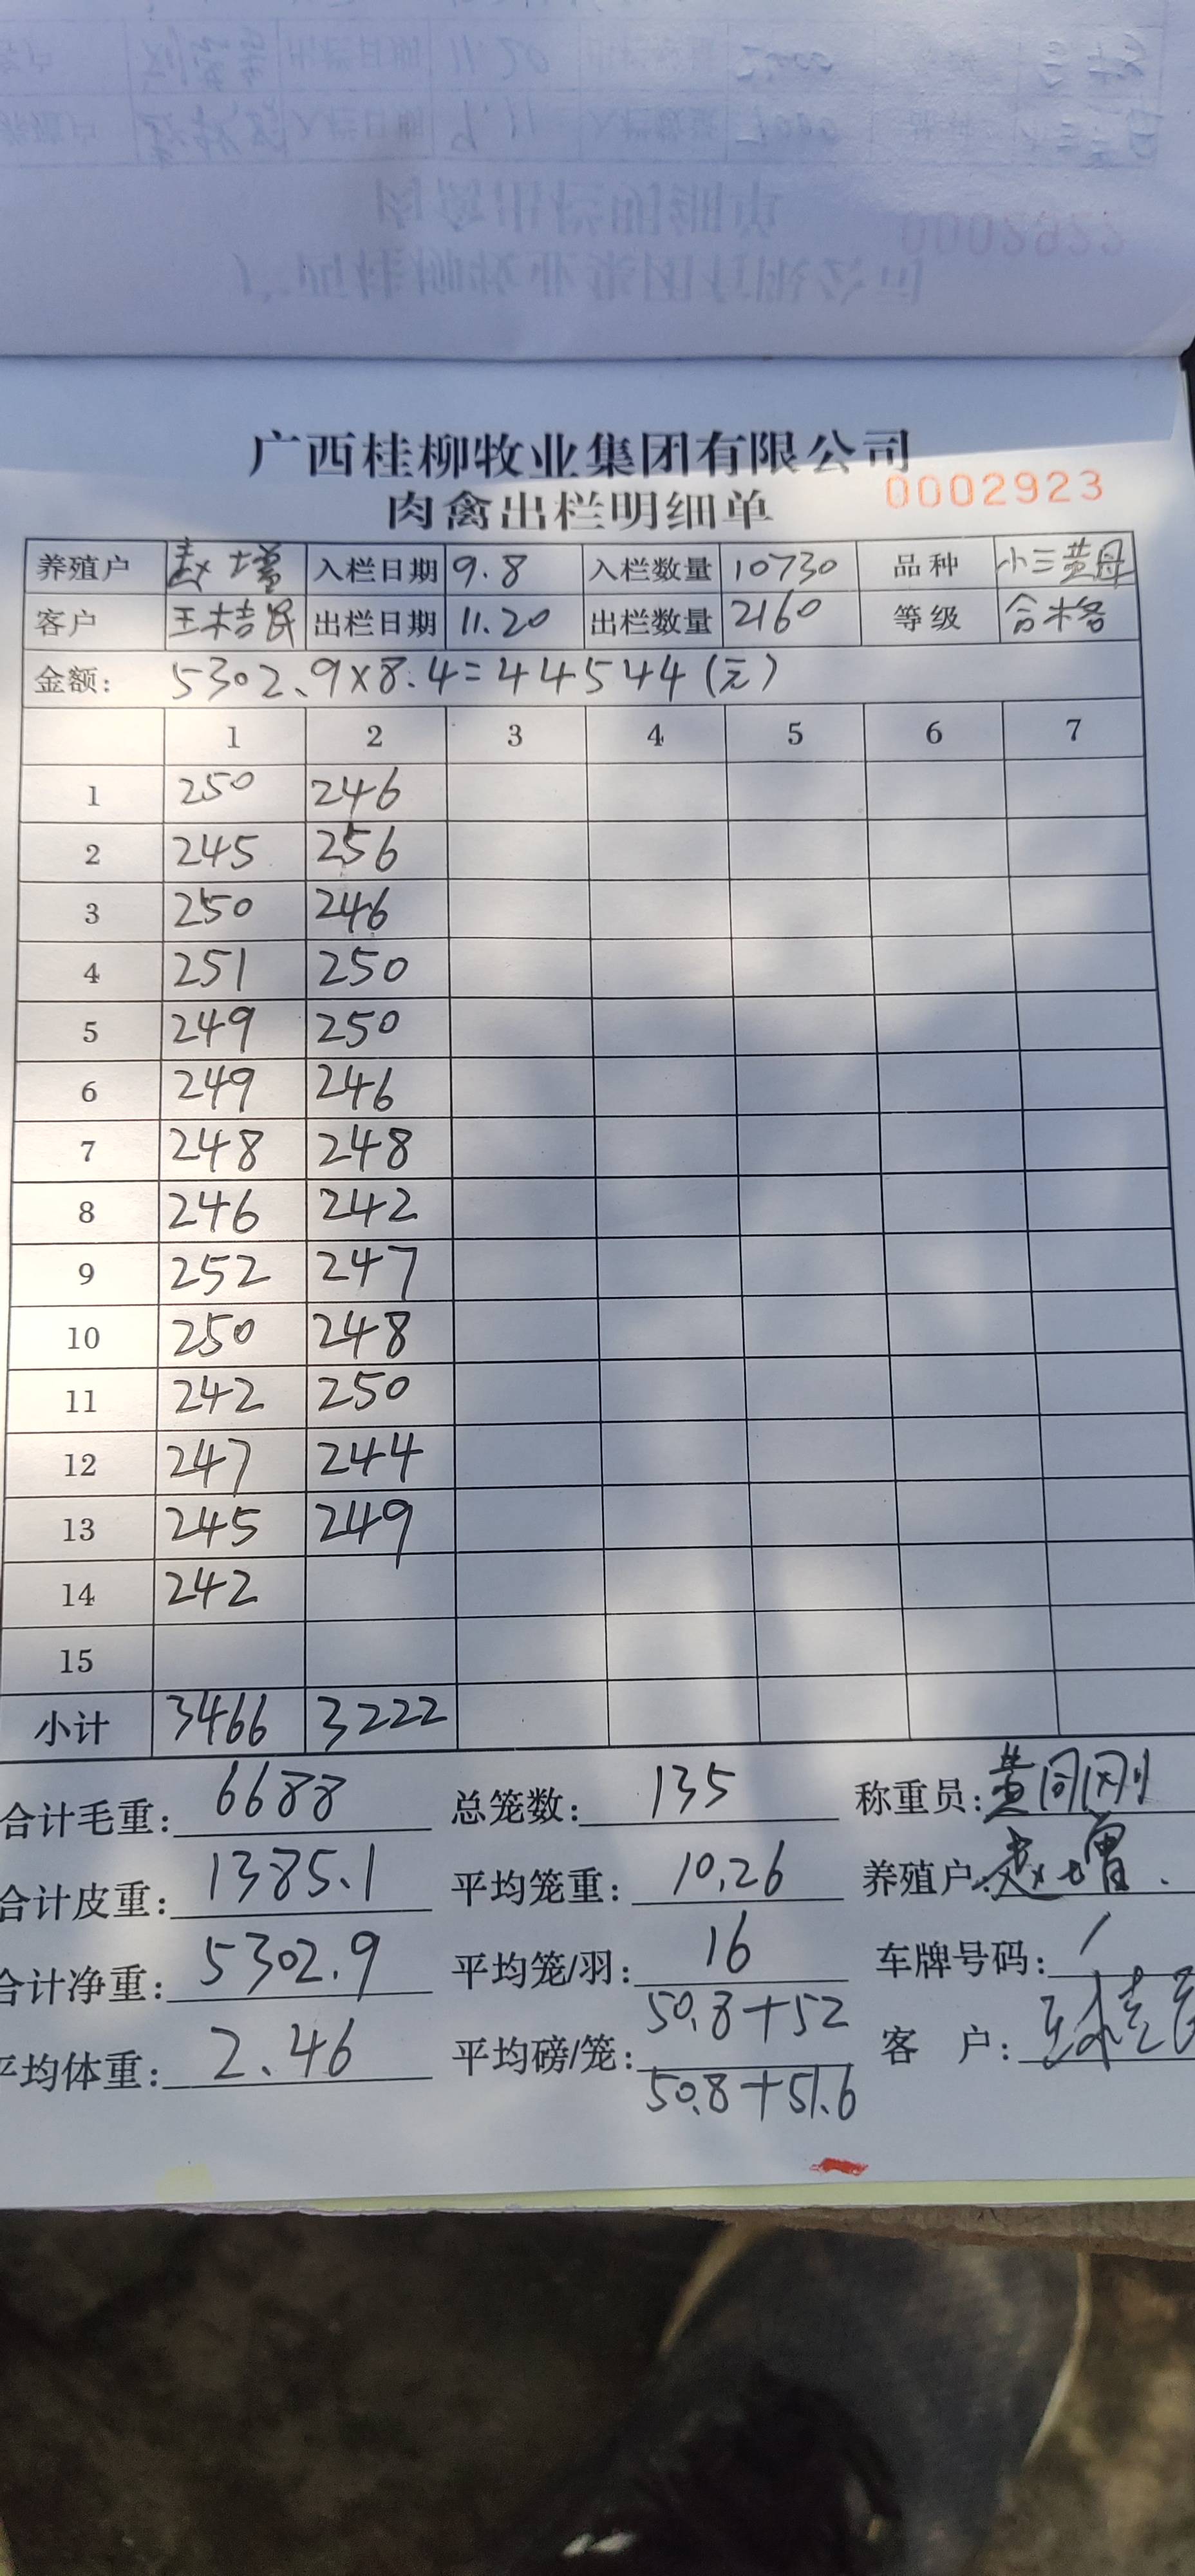 广西桂柳牧业集团有限公司
肉禽出栏明细单 0002923
养殖户 赵增 入栏日期 9.8 入栏数量 10730 品种 小三黄母
客户 王桔民 出栏日期 11.20 出栏数量 2160 等级 合格
金额: 5302.9×8.4=44544(元)
1 2 3 4 5 6 7
1 250 246
2 245 256
3 250 246
4 251 250
5 249 250
6 249 246
7 248 248
8 246 242
9 252 247
10 250 248
11 242 250
12 247 244
13 245 249
14 242
15
小计 3466 3222
合计毛重: 6688 总笼数: 135 称重员:
合计皮重: 1385.1 平均笼重: 10.26 养殖户: 赵增.
合计净重: 5302.9 平均笼/羽: 16 车牌号码: /
平均体重: 2.46 平均磅/笼: 50.8+52 客 户:
50.8+51.6